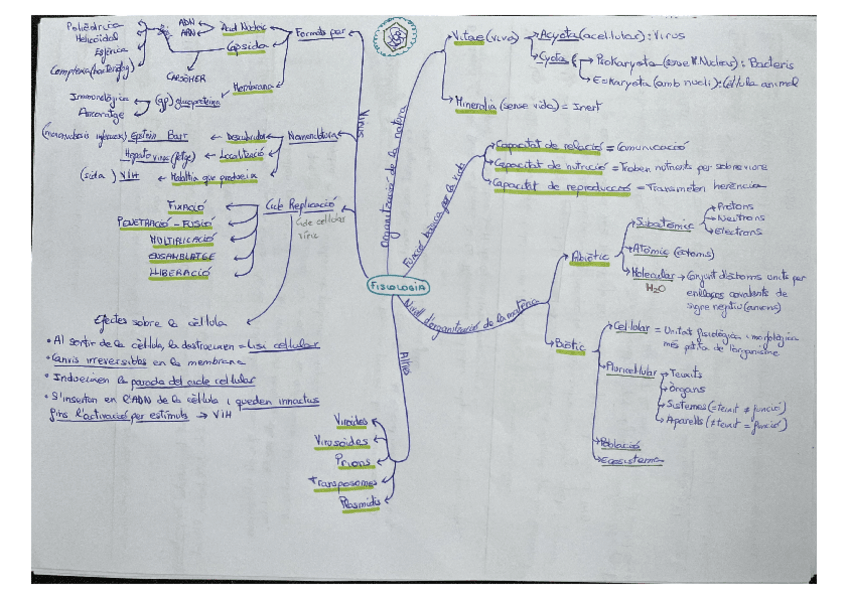 FISIOLOGIA
Organització de la matèria
Vitae (viva)
Acyota (acel·lular): Virus
Cyota
Prokaryota (sense M. Nuclear): Bacteris
Eukaryota (amb nucli): Cèl·lula animal
Mineralia (sense vida) = Inert
Funcions bàsiques per la vida
Capacitat de relació = Comunicació
Capacitat de nutrició = Troben nutrients per sobreviure
Capacitat de reproducció = Transmeten herència
Nivell d'organització de la matèria
Abiòtic
Subatòmic
Protons
Neutrons
Electrons
Atòmic (àtoms)
Molecular → Conjunt d'àtoms units per
enllaços covalents de
signe negatiu (anions)
H2O
Biòtic
Cel·lular = Unitat fisiològica i morfològica
més petita de l'organisme
Pluricel·lular
Teixits
Òrgans
Sistemes (= teixit ≠ funció)
Aparells (≠ teixit = funció)
Població
Ecosistema
Altres
Viroides
Virosoides
Prions
Transposomes
Plasmidis
Virus
Formats per
Àcid Nucleic
ADN
ARN
Càpsida
Polièdrica
Helicoïdal
Esfèrica
Complexa
CAPSÒMER
Membrana
(gp) glucoproteïna
Immunològica
Ancoratge
Nomenclatura
Descubridor
Epstein Barr
Localització
Hepatovirus (fetge)
Malaltia que produeix
(sida) VIH
Cicle Replicació
Cicle cel·lular
víric
FIXACIÓ
PENETRACIÓ - FUSIÓ
MULTIPLICACIÓ
ENSAMBLATGE
LLIBERACIÓ
Efectes sobre la cèl·lula
• Al sortir de la cèl·lula, la destrueixen = Lisi cel·lular
• Canvis irreversibles en la membrana
• Indueixen la parada del cicle cel·lular
• S'inserten en l'ADN de la cèl·lula i queden innactius
fins l'activació per estímuls → VIH